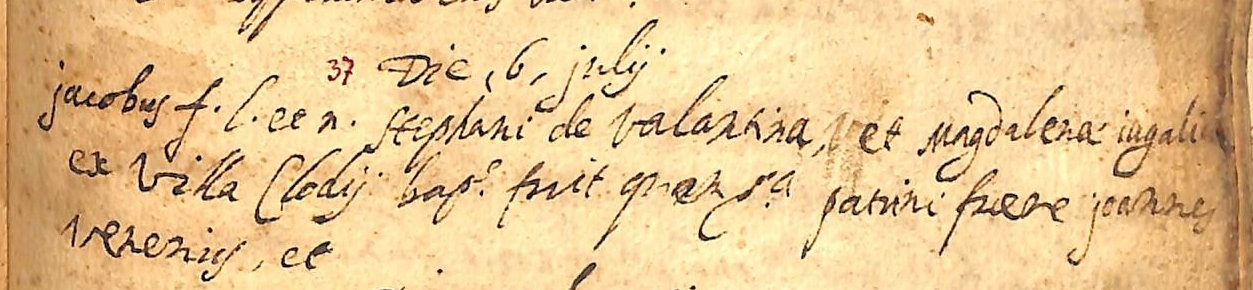 37 Die, 6, julij
jacobus f. l. et n. stephani de Valantina, et Magdalenæ iugaliu
ex Villa Clodij bap.s fuit patrini fuere joannes
Venerius, et